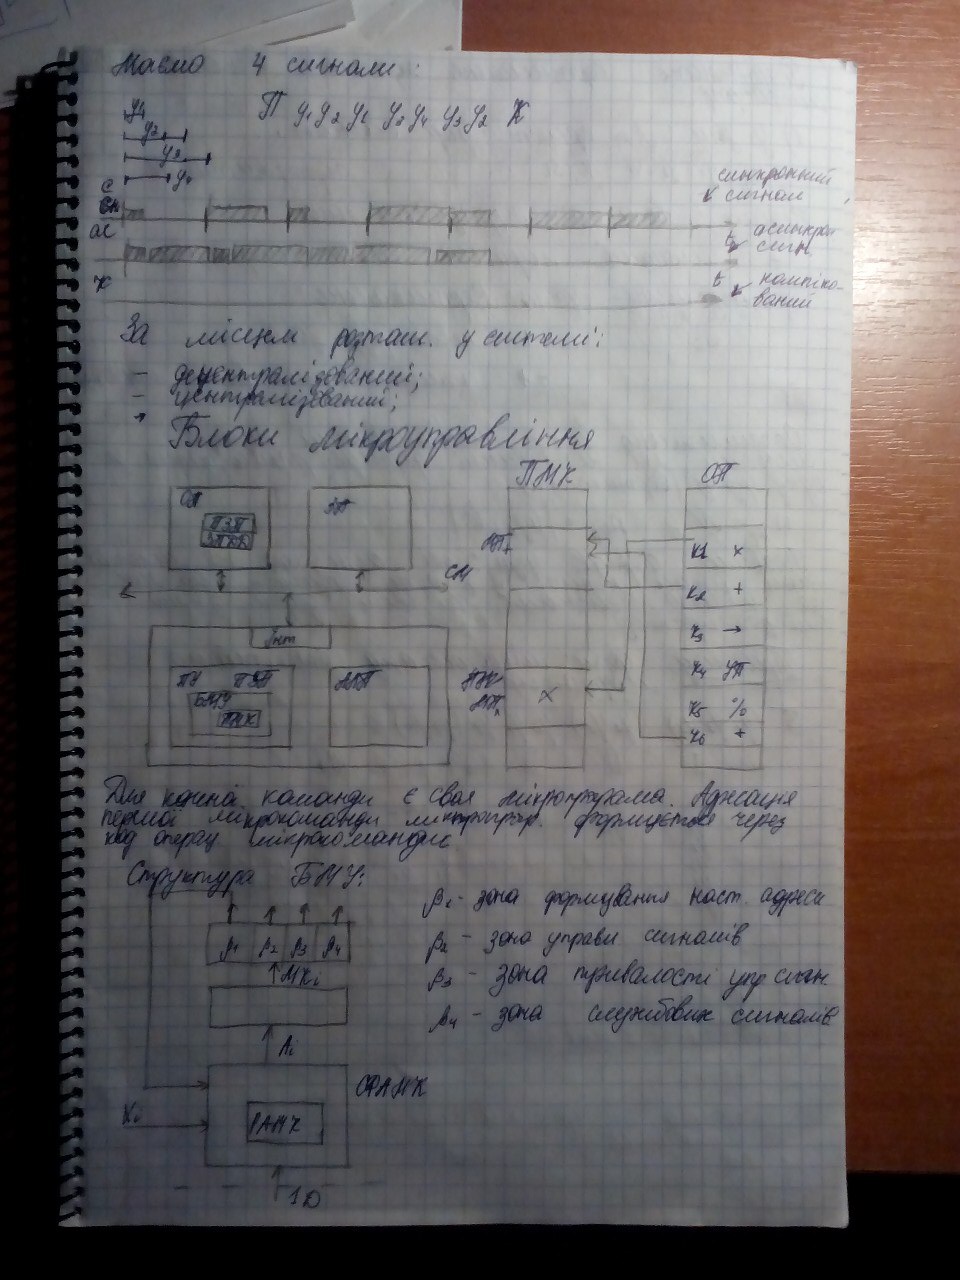 Маємо 4 сигнали:
П y₁ y₂ y₁ y₃ y₄ y₃ y₂ К
y₁
y₂
y₃
y₄
синхронний
сигнал
ас
t
асинхрон
сигн.
К
t
комбіно-
ваний
За місцем розташ. у системі:
- децентралізований;
- централізований;
Блоки мікроуправління
ПМК
ОП
ОП
ПЗП
СМ
К1 ×
К2 +
К3 →
К4 УП
К5 %
К6 +
Інт
ПУ ПЗП
БМУ
ПМК
×
Для кожної команди є своя мікропрограма. Адресація
першої мікрокоманди мікропрогр. формується через
код операц. мікрокоманди
Структура БМУ:
β₁ β₂ β₃ β₄
β₁ - зона формування наст. адреси
β₂ - зона управл сигналів
β₃ - зона тривалості упр сигн
β₄ - зона службових сигналів
МКᵢ
Аᵢ
СФАМК
РАМК